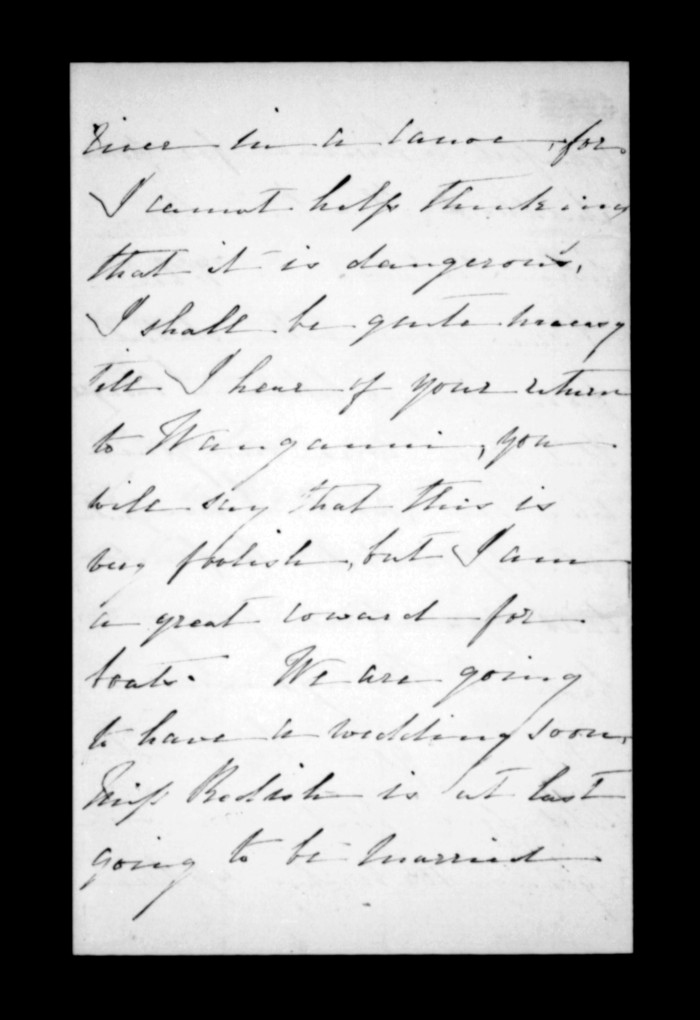 River in a canoe, for
I cannot help thinking
that it is dangerous,
I shall be quite uneasy
till I hear of your return
to Wanganui, you
will say that this is
very foolish, but I am
a great coward for
boats. We are going
to have a wedding soon,
Miss Redish is at last
going to be married